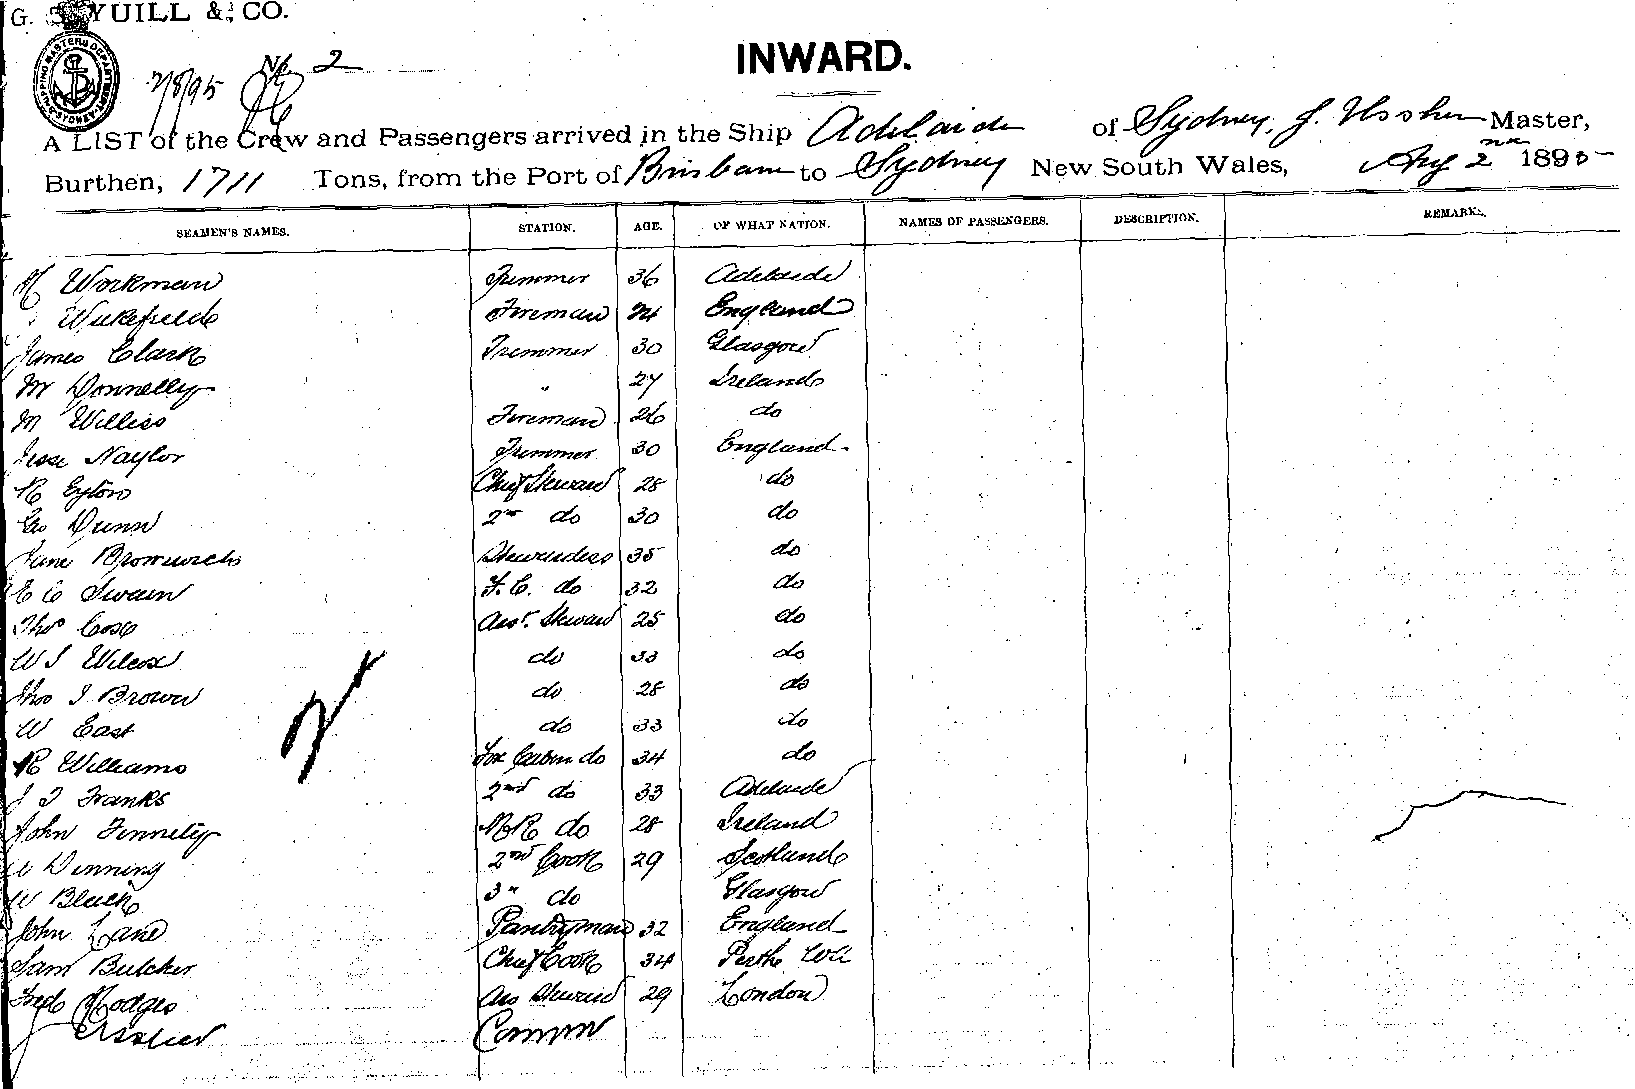 G. S. YUILL & CO.
SHIPPING MASTERS DEPARTMENT SYDNEY
2/8/95 No 2
INWARD.
A LIST of the Crew and Passengers arrived in the Ship Adelaide of Sydney, J. Ussher Master,
Burthen, 1711 Tons, from the Port of Brisbane to Sydney New South Wales, Aug 2nd 1895
SEAMEN'S NAMES. STATION. AGE. OF WHAT NATION. NAMES OF PASSENGERS. DESCRIPTION. REMARKS.
Workman Trimmer 36 Adelaide
Wakefield Fireman 24 England
James Clark Tremmer 30 Glasgow
M Donnelly " 27 Ireland
M Williss Fireman 26 do
Jesse Naylor Trimmer 30 England
R Eyton Chief Steward 28 do
Geo Dunn 2nd do 30 do
Jane Bromwich Stewardess 35 do
E C Swain F. C. do 32 do
Thos Cox Asst. Steward 25 do
W J Wilcox do 33 do
Thos J Brown do 28 do
W East do 33 do
R Williams For Cabin do 34 do
J T Franks 2nd do 33 Adelaide
John Finnely MR do 28 Ireland
Dinning 2nd Cook 29 Scotland
W Black 3rd do Glasgow
John Lane Pantryman 32 England
Sam Butcher Chief Cook 34 Perth WA
Fred Hodges Ass Steward 29 London
J Ussher Comm